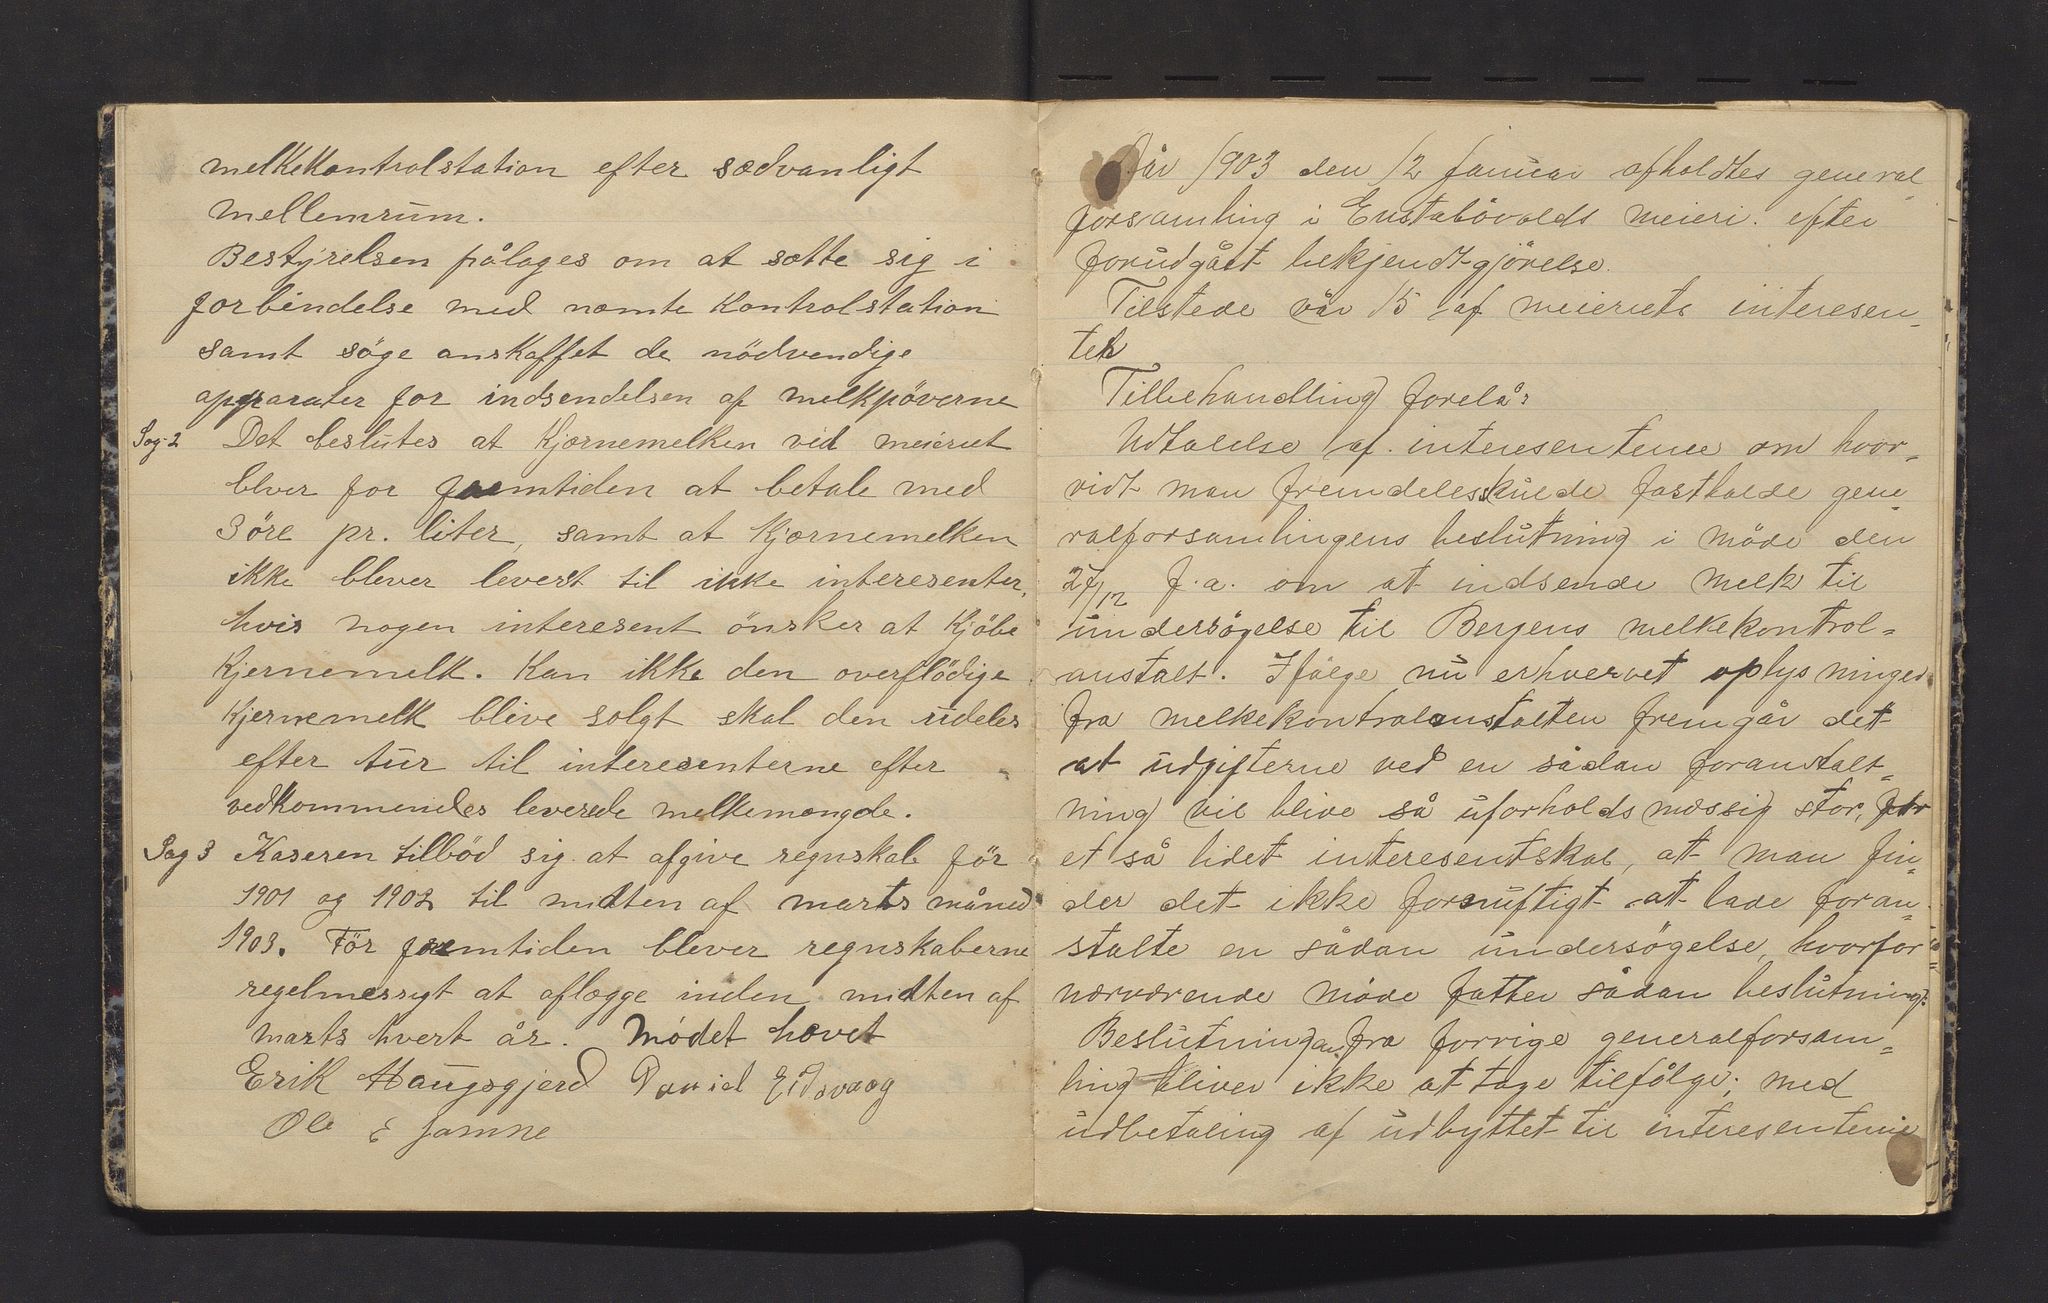 melkekontrolstation efter sædvanligt
mellemrum.
Bestyrelsen pålages om at sætte sig i
forbindelse med næmte kontrolstation
samt söge anskaffet de nödvendige
apparater for indsendelsen af melkpöverne
Sag 2 Det beslutes at kjærnemelken ved meieriet
blver for fremtiden at betale med
3 öre pr. liter, samt at kjærnemelken
ikke blever levert til ikke interesenter,
hvis nogen interesent önsker at kjöbe
kjernemelk. Kan ikke den overflödige
kjernemelk blive solgt skal den udeles
efter tur til interesenterne efter
vedkommendes leverede melkemængde.
Sag 3 Kaseren tilböd sig at afgive regnskab för
1901 og 1902 til midten af marts måned
1903. För fremtiden blever regnskaberne
regelmessigt at aflægge inden midten af
marts hvert år. Mödet hævet
Erik Haugsgjerd David Eidsvaag
Ole E Jamne
År 1903 den 12 Januar afholdtes general
forsamling i Eustabövalds meieri. efter
forudgået bekjendtgjörelse.
Tilstede vår 15 af meieriets interesen-
ter
Tilbehandling forelå:
Udtalelse af interesenterne om hvor-
vidt man fremdeles skulde fastholde gene-
ralforsamlingens beslutning i möde den
27/12 f.a. om at indsende melk til
undersögelse til Bergens melkekontrol-
anstalt. Ifölge nu erhvervet oplysninger
fra melkekontrolanstalten fremgår det
at udgifterne ved en sådan foranstalt-
ning vil blive så uforholdsmæssig stor, for
et så lidet interesentskab, at man fin-
der det ikke fornuftigt at lade foran-
stalte en sådan undersögelse, hvorfor
nærværende möde fatter sådan beslutning:
Beslutningen fra forrige generalforsam-
ling bliver ikke at tage tilfölge; med
udbetaling af udbyttet til interesenterne